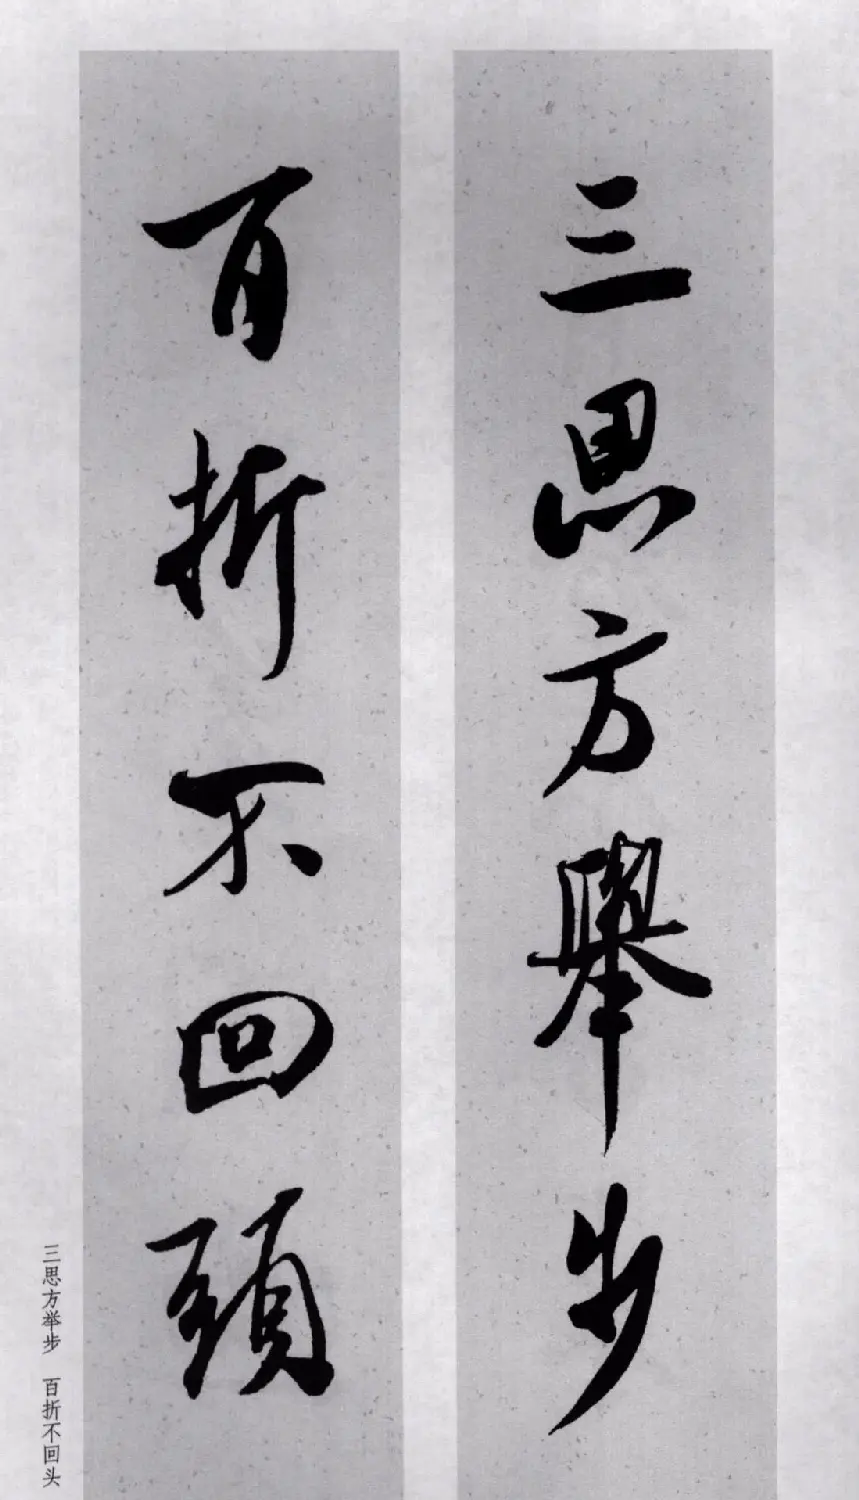 三思方舉步
百折不回頭
三思方举步 百折不回头